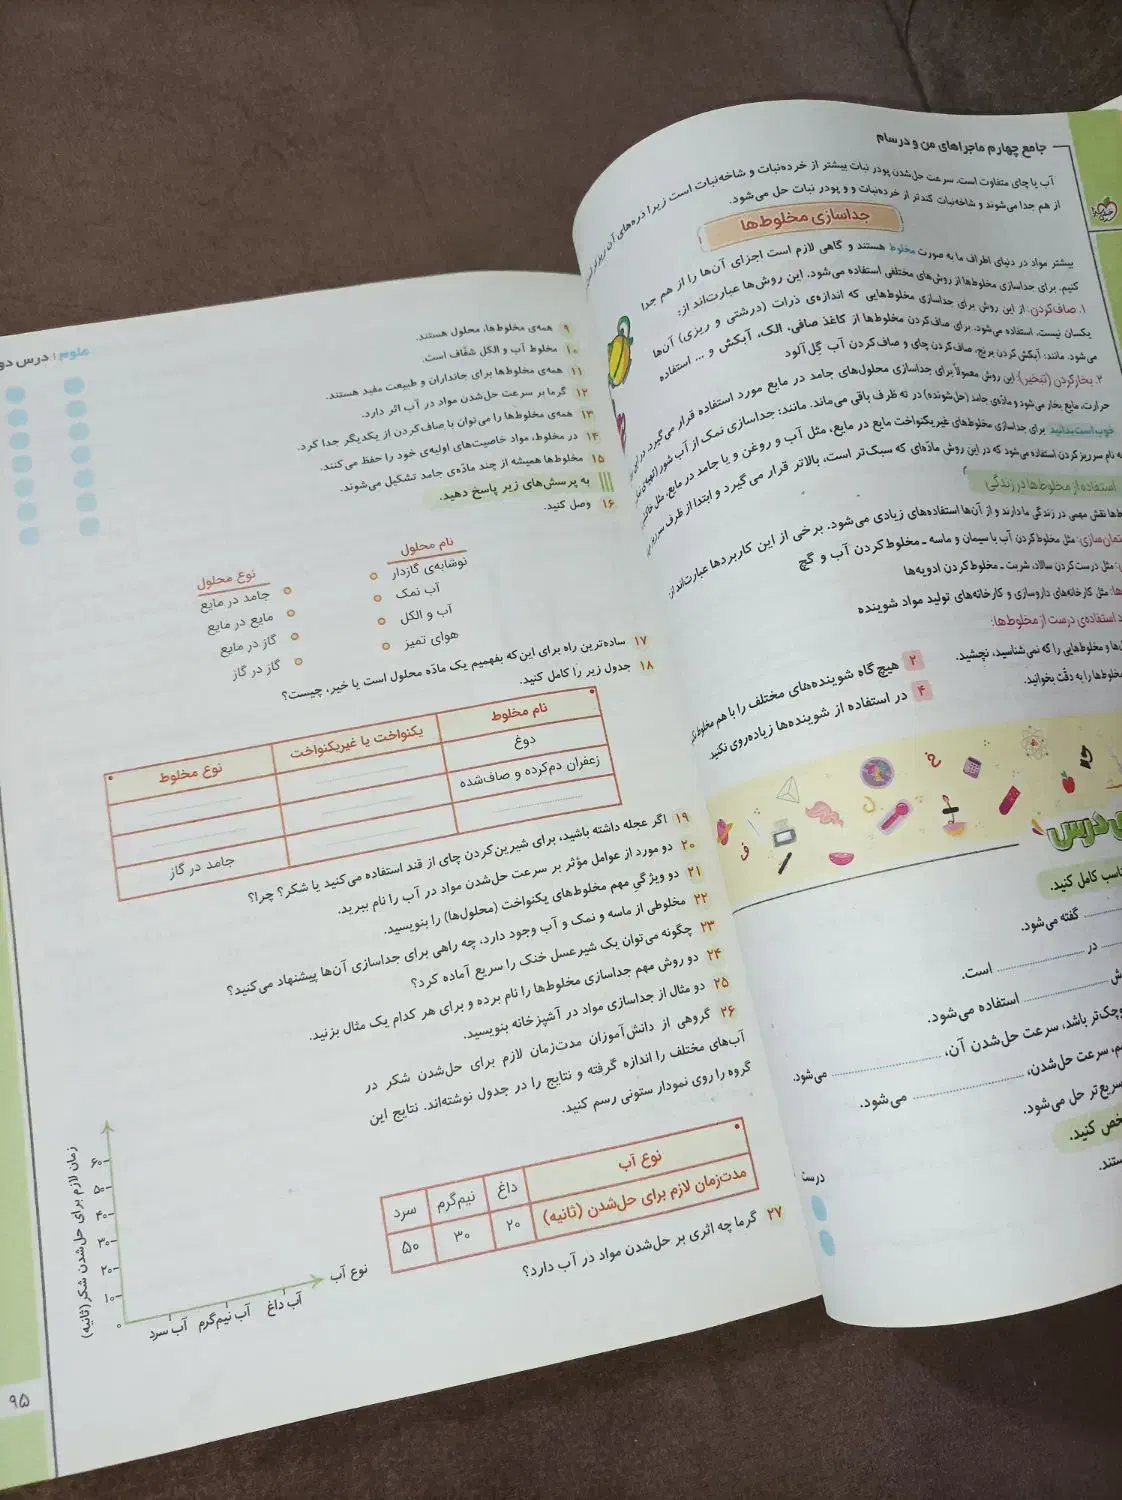 جامع چهارم ماجراهای من و درسام
آب یا چای متفاوت است. سرعت حل‌شدن پودر نبات بیشتر از خرده‌نبات و شاخه‌نبات است زیرا ذره‌های آن ریزتر
از هم جدا می‌شوند و شاخه‌نبات کندتر از خرده‌نبات و و پودر نبات حل می‌شود.
جداسازی مخلوط‌ها
بیشتر مواد در دنیای اطراف ما به صورت مخلوط هستند و گاهی لازم است اجزای آن‌ها را از هم جدا
کنیم. برای جداسازی مخلوط‌ها از روش‌های مختلفی استفاده می‌شود. این روش‌ها عبارت‌اند از:
۱. صاف‌کردن: از این روش برای جداسازی مخلوط‌هایی که اندازه‌ی ذرات (درشتی و ریزی) آن‌ها
یکسان نیست، استفاده می‌شود. برای صاف‌کردن مخلوط‌ها از کاغذ صافی، الک، آبکش و ... استفاده
می‌شود. مانند: آبکش کردن برنج، صاف‌کردن چای و صاف‌کردن آب گِل‌آلود
۲. بخارکردن (تبخیر): این روش معمولاً برای جداسازی محلول‌های جامد در مایع مورد استفاده قرار می‌گیرد. در این
حرارت، مایع بخار می‌شود و ماده‌ی جامد (حل‌شونده) در ته ظرف باقی می‌ماند. مانند: جداسازی نمک از آب شور
خوب است بدانید برای جداسازی مخلوط‌های غیریکنواخت مایع در مایع، مثل آب و روغن و یا جامد در مایع، مثل
به نام سرریز کردن استفاده می‌شود که در این روش ماده‌ای که سبک‌تر است، بالاتر قرار می‌گیرد و ابتدا از ظرف
استفاده از مخلوط‌ها در زندگی
ط‌ها نقش مهمی در زندگی ما دارند و از آن‌ها استفاده‌های زیادی می‌شود. برخی از این کاربردها عبارت‌اند از:
تمان‌سازی: مثل مخلوط کردن آب با سیمان و ماسه ـ مخلوط کردن آب و گچ
مثل درست کردن سالاد، شربت ـ مخلوط کردن ادویه‌ها
ها: مثل کارخانه‌های داروسازی و کارخانه‌های تولید مواد شوینده
د استفاده‌ی درست از مخلوط‌ها:
ها و مخلوط‌هایی را که نمی‌شناسید، نچشید.
۲ هیچ گاه شوینده‌های مختلف را با هم مخلوط
مخلوط‌ها را به دقّت بخوانید.
۴ در استفاده از شوینده‌ها زیاده‌روی نکنید.
ی درس
ناسب کامل کنید.
گفته می‌شود.
در ........ است.
ش ........ استفاده می‌شود.
وچک‌تر باشد، سرعت حل‌شدن آن، ........ می‌شود.
م، سرعت حل‌شدن، ........ می‌شود.
سریع‌تر حل می‌شود.
خص کنید.
ستند.
علوم | درس دو
۹ همه‌ی مخلوط‌ها، محلول هستند.
۱۰ مخلوط آب و الکل شفّاف است.
۱۱ همه‌ی مخلوط‌ها برای جانداران و طبیعت مفید هستند.
۱۲ گرما بر سرعت حل‌شدن مواد در آب اثر دارد.
۱۳ همه‌ی مخلوط‌ها را می‌توان با صاف‌کردن از یکدیگر جدا کرد.
۱۴ در مخلوط، مواد خاصیت‌های اولیه‌ی خود را حفظ می‌کنند.
۱۵ مخلوط‌ها همیشه از چند ماده‌ی جامد تشکیل می‌شوند.
به پرسش‌های زیر پاسخ دهید.
۱۶ وصل کنید.
نام محلول
نوع محلول
نوشابه‌ی گازدار
جامد در مایع
آب نمک
مایع در مایع
آب و الکل
گاز در مایع
هوای تمیز
گاز در گاز
۱۷ ساده‌ترین راه برای این‌که بفهمیم یک مادّه محلول است یا خیر، چیست؟
۱۸ جدول زیر را کامل کنید.
نام مخلوط
یکنواخت یا غیریکنواخت
نوع مخلوط
دوغ
زعفران دم‌کرده و صاف‌شده
جامد در گاز
۱۹ اگر عجله داشته باشید، برای شیرین‌کردن چای از قند استفاده می‌کنید یا شکر؟ چرا؟
۲۰ دو مورد از عوامل مؤثر بر سرعت حل‌شدن مواد در آب را نام ببرید.
۲۱ دو ویژگیِ مهم مخلوط‌های یکنواخت (محلول‌ها) را بنویسید.
۲۲ مخلوطی از ماسه و نمک و آب وجود دارد، چه راهی برای جداسازی آن‌ها پیشنهاد می‌کنید؟
۲۳ چگونه می‌توان یک شیرعسل خنک را سریع آماده کرد؟
۲۴ دو روش مهم جداسازی مخلوط‌ها را نام برده و برای هر کدام یک مثال بزنید.
۲۵ دو مثال از جداسازی مواد در آشپزخانه بنویسید.
۲۶ گروهی از دانش‌آموزان مدت‌زمان لازم برای حل‌شدن شکر در
آب‌های مختلف را اندازه گرفته و نتایج را در جدول نوشته‌اند. نتایج این
گروه را روی نمودار ستونی رسم کنید.
نوع آب
داغ
نیم‌گرم
سرد
مدت‌زمان لازم برای حل‌شدن (ثانیه)
۲۰
۳۰
۵۰
زمان لازم برای حل‌شدن شکر (ثانیه)
۶۰
۵۰
۴۰
۳۰
۲۰
۱۰
۰
آب سرد
آب نیم‌گرم
آب داغ
نوع آب
۲۷ گرما چه اثری بر حل‌شدن مواد در آب دارد؟
۹۵